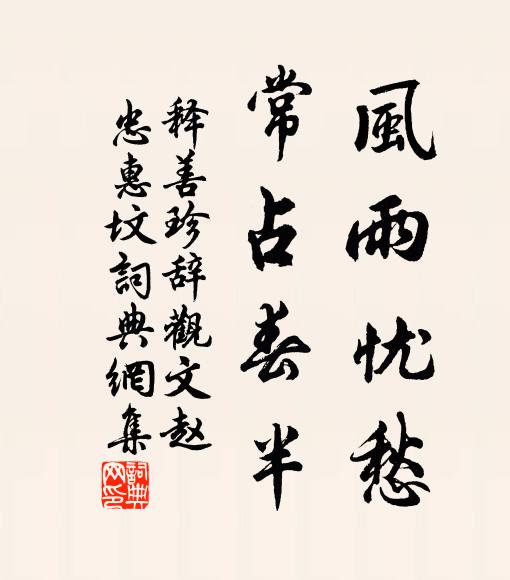 風雨忧愁
常占春半
释善珍辞觀文赵
忠惠坟詞典網集
詞典
网印